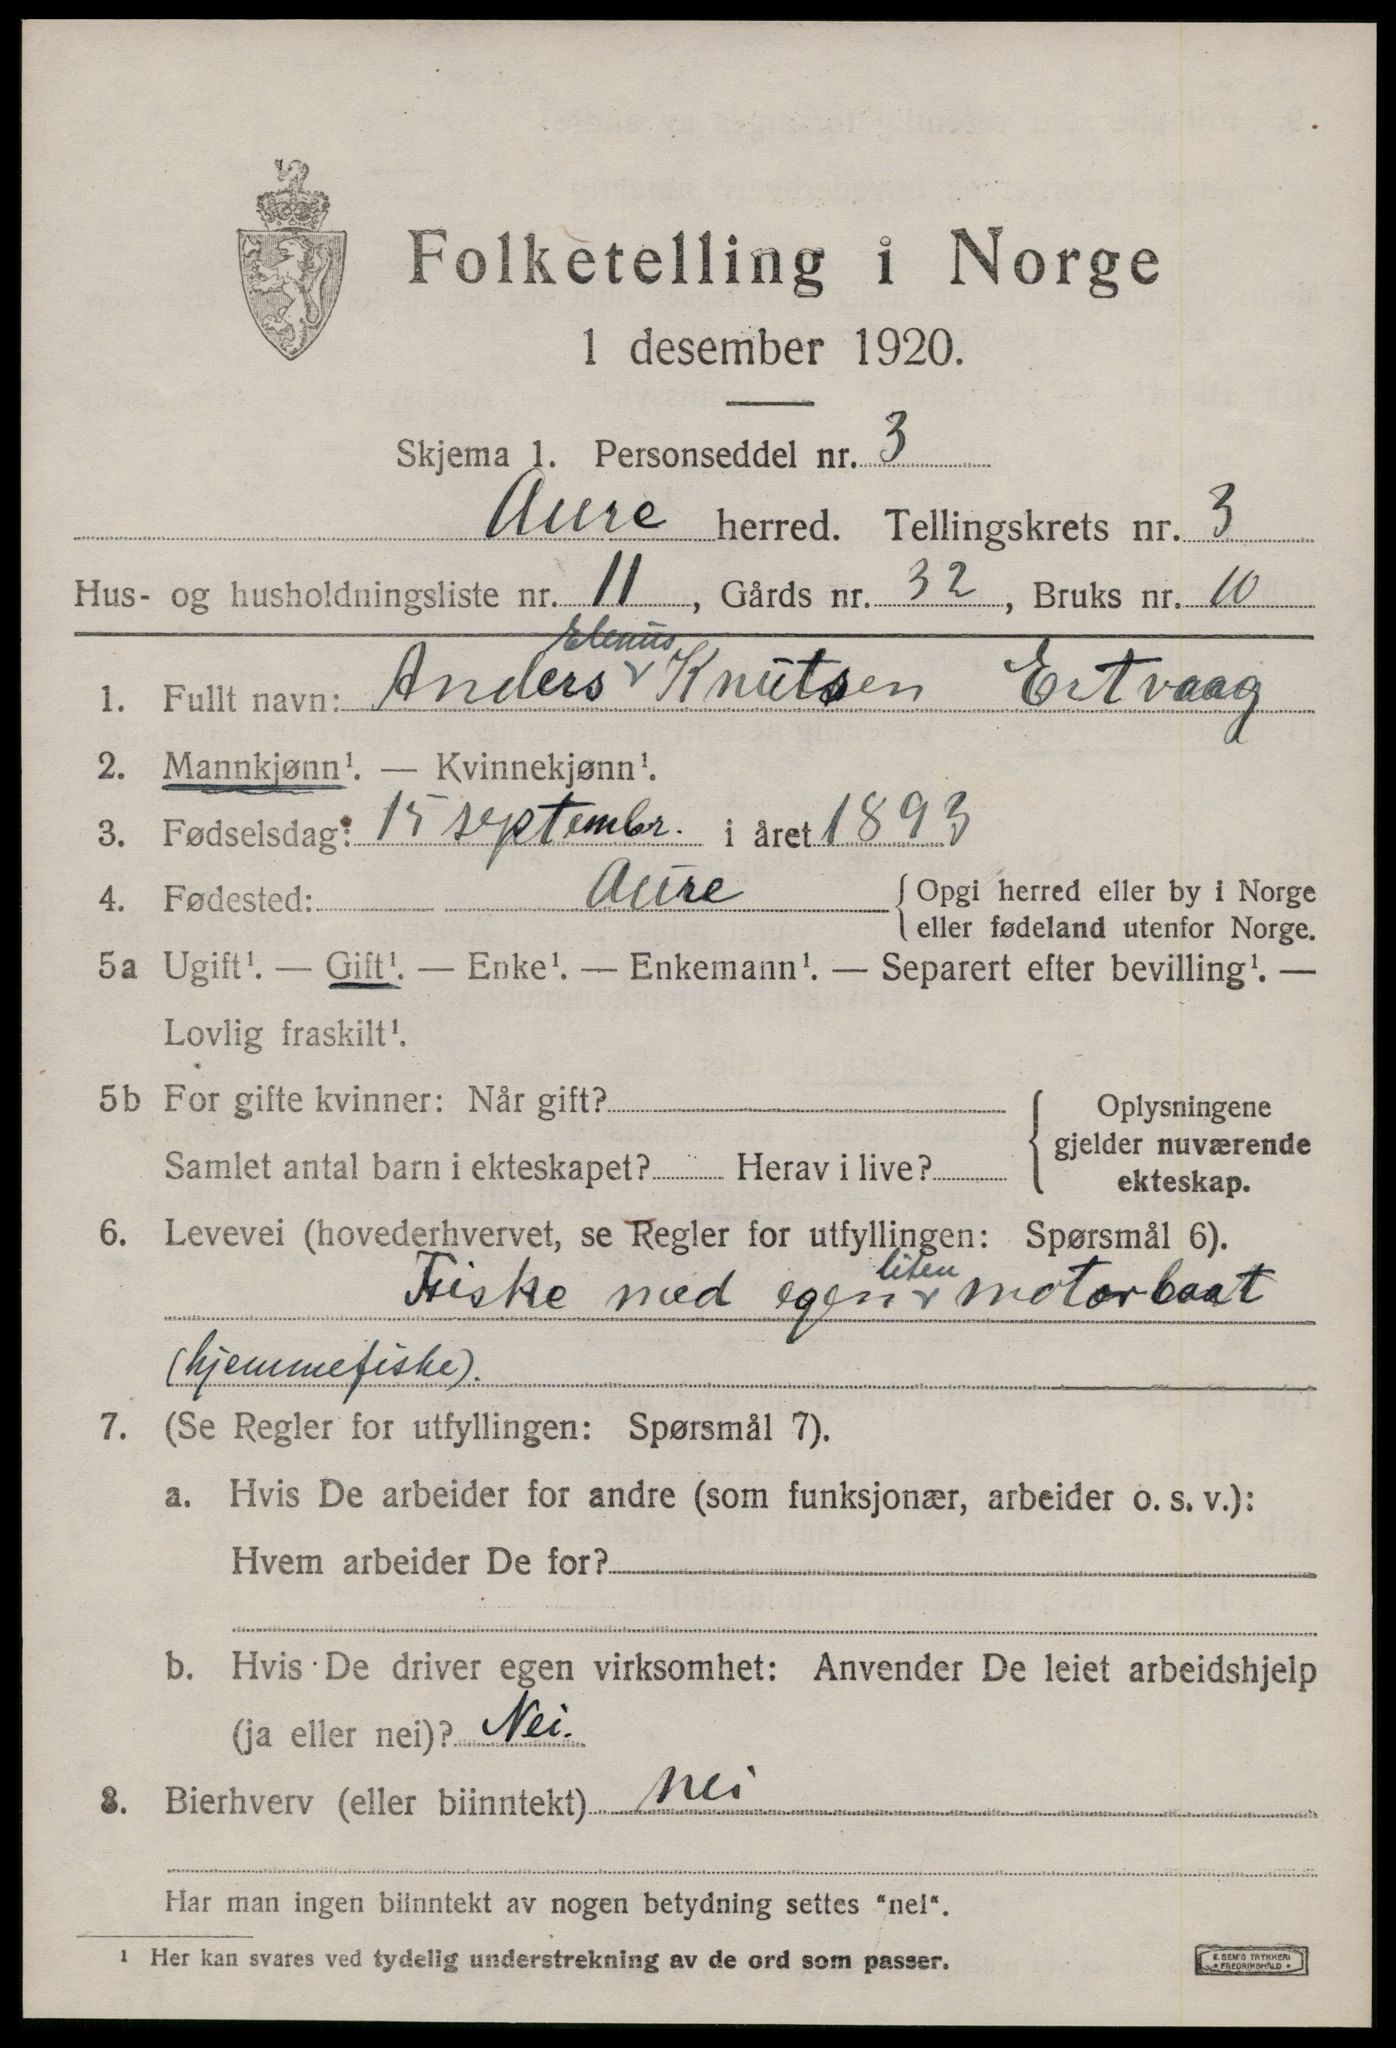 Folketelling i Norge
1 desember 1920.
Skjema 1. Personseddel nr. 3
Aure herred. Tellingskrets nr. 3
Hus- og husholdningsliste nr. 11, Gårds nr. 32, Bruks nr. 10
1. Fullt navn: Anders Elenus Knutsen Ertvaag
2. Mannkjønn¹. — Kvinnekjønn¹.
3. Fødselsdag: 15 septembr. i året 1893
4. Fødested: Aure { Opgi herred eller by i Norge
eller fødeland utenfor Norge.
5a Ugift¹. — Gift¹. — Enke¹. — Enkemann¹. — Separert efter bevilling¹. —
Lovlig fraskilt¹.
5b For gifte kvinner: Når gift?
Samlet antal barn i ekteskapet? Herav i live?
{ Oplysningene
gjelder nuværende
ekteskap.
6. Levevei (hovederhvervet, se Regler for utfyllingen: Spørsmål 6).
Fiske med egen liten motorbaat
(hjemmefiske).
7. (Se Regler for utfyllingen: Spørsmål 7).
a. Hvis De arbeider for andre (som funksjonær, arbeider o. s. v.):
Hvem arbeider De for?
b. Hvis De driver egen virksomhet: Anvender De leiet arbeidshjelp
(ja eller nei)? Nei.
8. Bierhverv (eller biinntekt) nei
Har man ingen biinntekt av nogen betydning settes "nei".
¹ Her kan svares ved tydelig understrekning av de ord som passer.
E. SEM'S TRYKKERI
• FREDRIKSHALD •